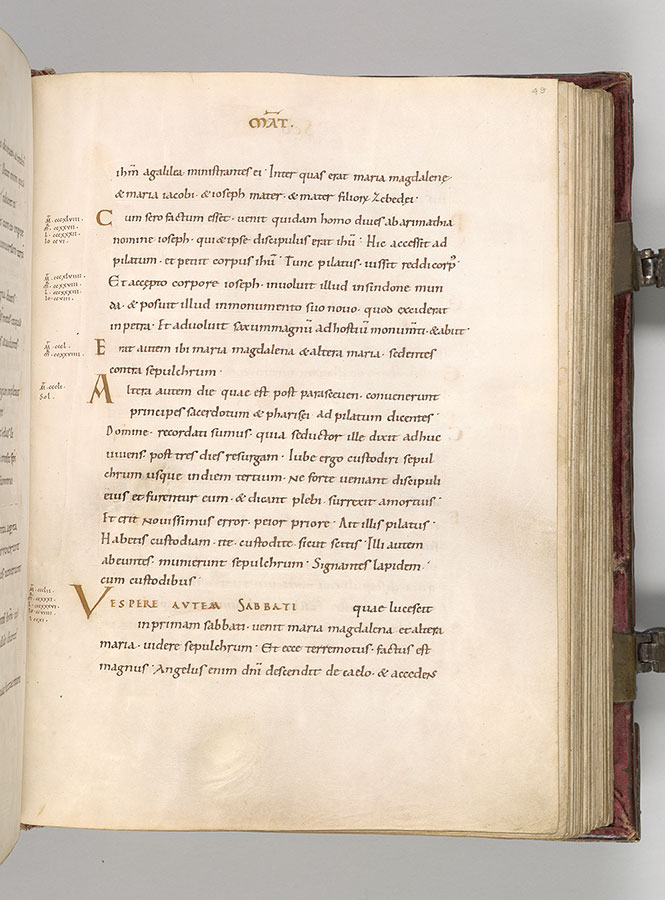 49
MAT.
ihm agalilea ministrantes ei · Inter quas erat maria magdalene ·
& maria iacobi · & ioseph mater · & mater filiorum Zebedei ·
Cum sero factum esset · uenit quidam homo diues ab arimathia
nomine ioseph · qui & ipse discipulus erat ihu · Hic accessit ad
pilatum · et petiit corpus ihu · Tunc pilatus · iussit reddi corp' ·
Et accepto corpore ioseph · inuoluit illud insindone mun
da · & posuit illud inmonumento suo nouo · quod exciderat
in petra · Et aduoluit saxum magnū ad hostiū monumti · & abiit ·
Erat autem ibi maria magdalena & altera maria · sedentes
contra sepulchrum ·
Altera autem die quae est post parasceuen · conuenerunt
principes sacerdotum & pharisei ad pilatum dicentes ·
Domine · recordati sumus · quia seductor ille dixit adhuc
uiuens · post tres dies resurgam · Iube ergo custodiri sepul
chrum usque indiem tertium · Ne forte ueniant discipuli
eius et furentur eum · & dicant plebi · surrexit amortuis ·
Et erit nouissimus error · peior priore · Ait illis pilatus ·
Habetis custodiam · ite · custodite sicut scitis · Illi autem
abeuntes · munierunt sepulchrum · Signantes lapidem ·
cum custodibus ·
VESPERE AUTEM SABBATI quae lucescit
in primam sabbati · uenit maria magdalena et altera
maria · uidere sepulchrum · Et ecce terremotus · factus est
magnus · Angelus enim dni descendit de caelo · & accedens